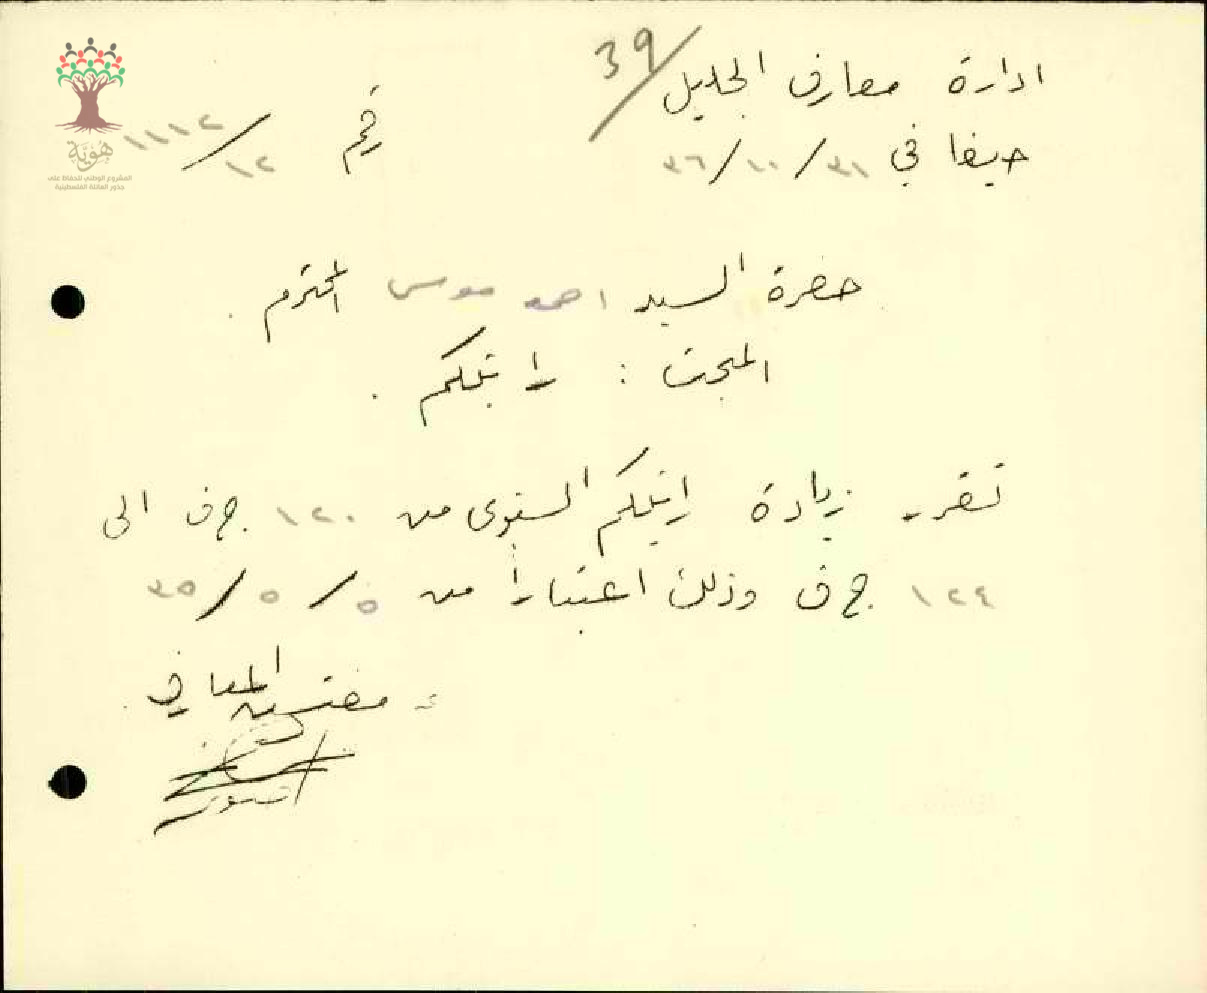 39
ادارة معارف الجليل
حيفا في ٣١/١٠/٣٦
رقم ١١١٢/١٢
هُوِيَّة
المشروع الوطني للحفاظ على
جذور العائلة الفلسطينية
حضرة السيد احمد موسى المحترم .
المبحث : راتبكم .
تقرر زيادة راتبكم السنوي من ١٢٠ ج ف الى
١٢٤ ج ف وذلك اعتباراً من ٥/٥/٣٥
مفتش المعارف